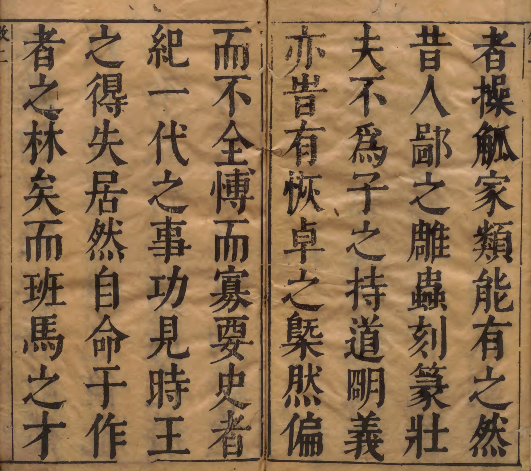 者操觚家類能有之然
昔人鄙之雕蟲刻篆壯
夫不爲子之持道明義
亦皆有恢卓之槩然偏
而不全愽而寡要史者
紀一代之事功見時王
之得失居然自命于作
者之林矣而班馬之才